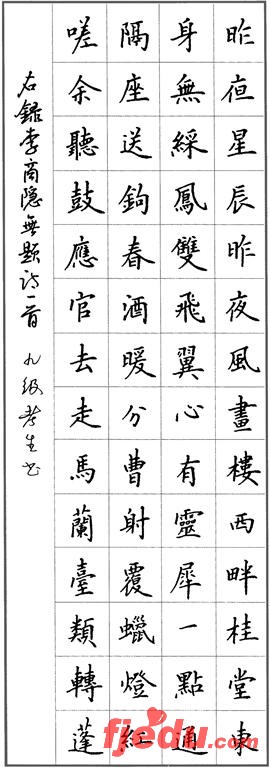 昨夜星辰昨夜風畫樓西畔桂堂東
身無綵鳳雙飛翼心有靈犀一點通
隔座送鉤春酒暖分曹射覆蠟燈紅
嗟余聽鼓應官去走馬蘭臺類轉蓬
右錄李商隱無題詩一首 九级考生书
fjedu.com